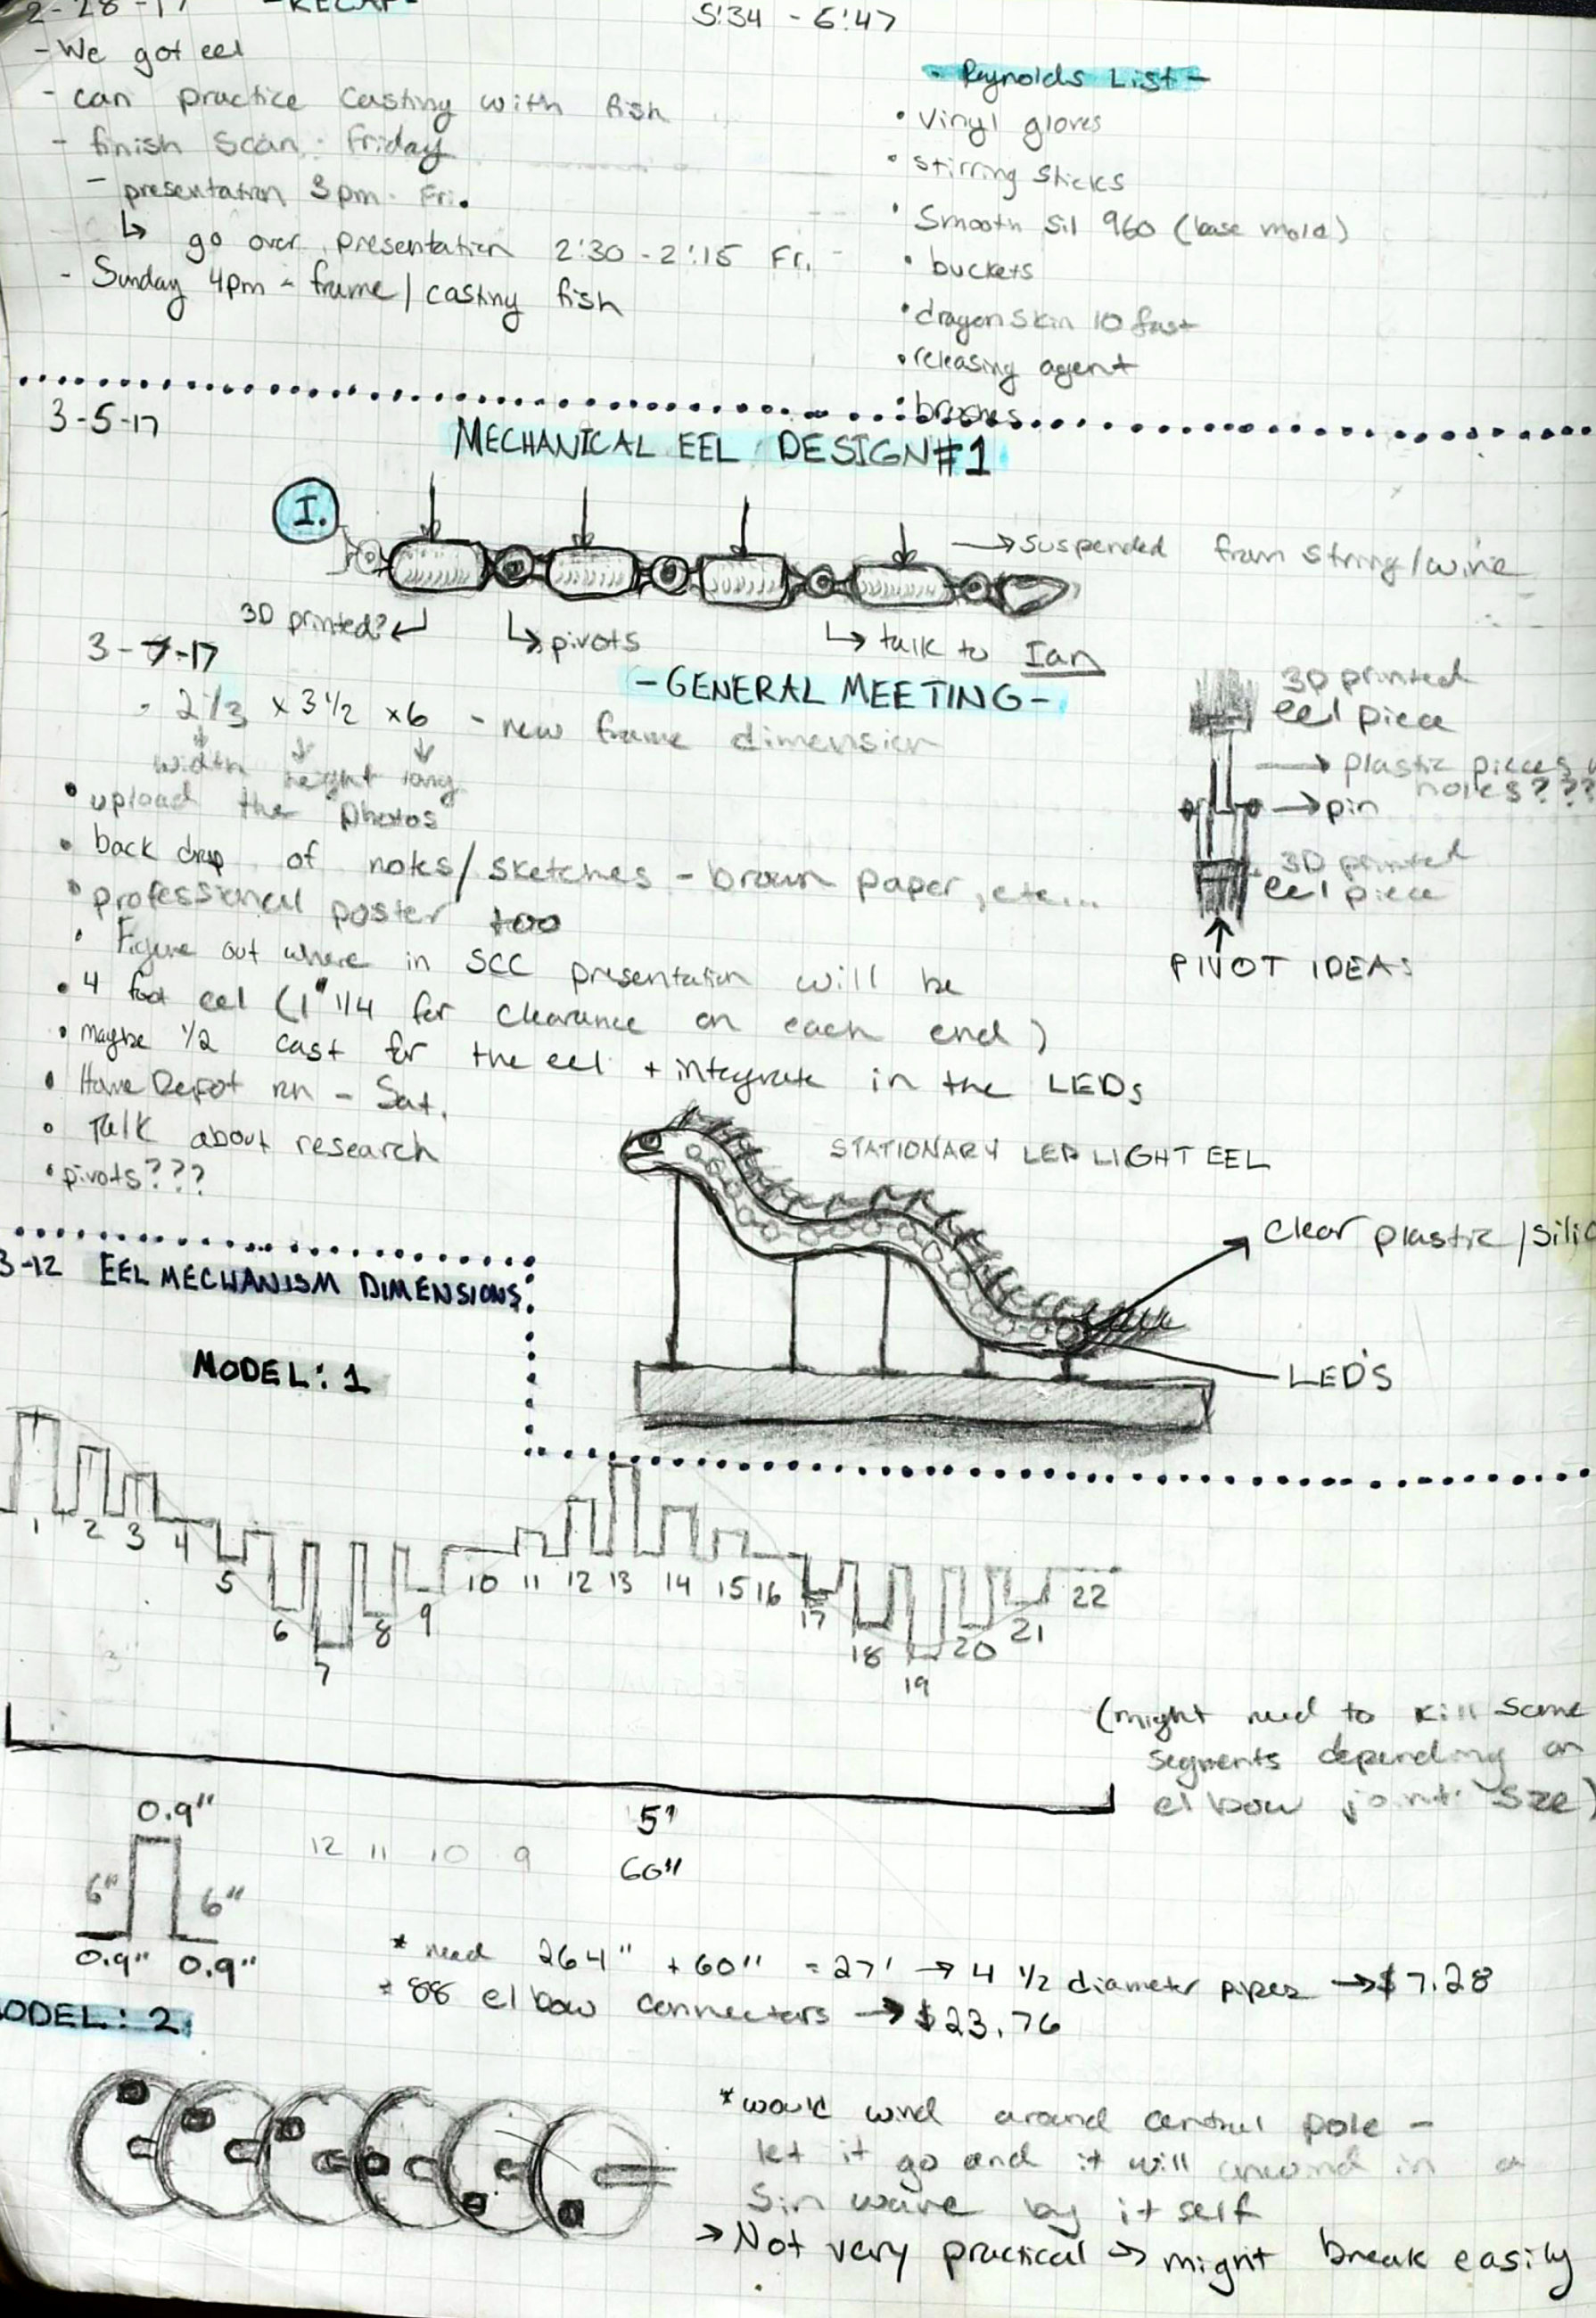 2-28-17 -RECAP- 5:34 - 6:47
- We got eel
- can practice casting with fish
- finish scan: Friday
- presentation 3pm Fri.
↳ go over presentation 2:30-2:15 Fri.
- Sunday 4pm - frame/casting fish
- Reynolds List -
• vinyl gloves
• stirring sticks
• Smooth Sil 960 (base mold)
• buckets
• dragon skin 10 fast
• releasing agent
• brushes
3-5-17
MECHANICAL EEL DESIGN #1
I.
→ suspended from string/wire
3D printed?
↳ pivots
↳ talk to Ian
3-7-17
-GENERAL MEETING-
- 2 1/3 x 3 1/2 x 6 - new frame dimension
width height long
• upload the photos
• back drop of notes/sketches - brown paper, etc...
• professional poster too
• Figure out where in SCC presentation will be
• 4 foot eel (1" 1/4 for clearance on each end)
• maybe 1/2 cast for the eel + integrate in the LEDs
• Home Depot run - Sat.
• Talk about research
• pivots???
3D printed
eel piece
→ plastic pieces
holes???
→ pin
3D printed
eel piece
PIVOT IDEAS
STATIONARY LED LIGHT EEL
clear plastic/silic
LED'S
3-12 EEL MECHANISM DIMENSIONS:
MODEL: 1
1 2 3 4 5 6 7 8 9 10 11 12 13 14 15 16 17 18 19 20 21 22
(might need to kill some
segments depending on
elbow joint size)
5'
60"
0.9"
6" 6"
0.9" 0.9"
12 11 10 9
* need 264" + 60" = 27' → 4 1/2 diameter pipes → $7.28
* 88 elbow connectors → $23.76
MODEL: 2
* would wind around central pole -
let it go and it will unwind in a
sin wave by itself
→ Not very practical → might break easily